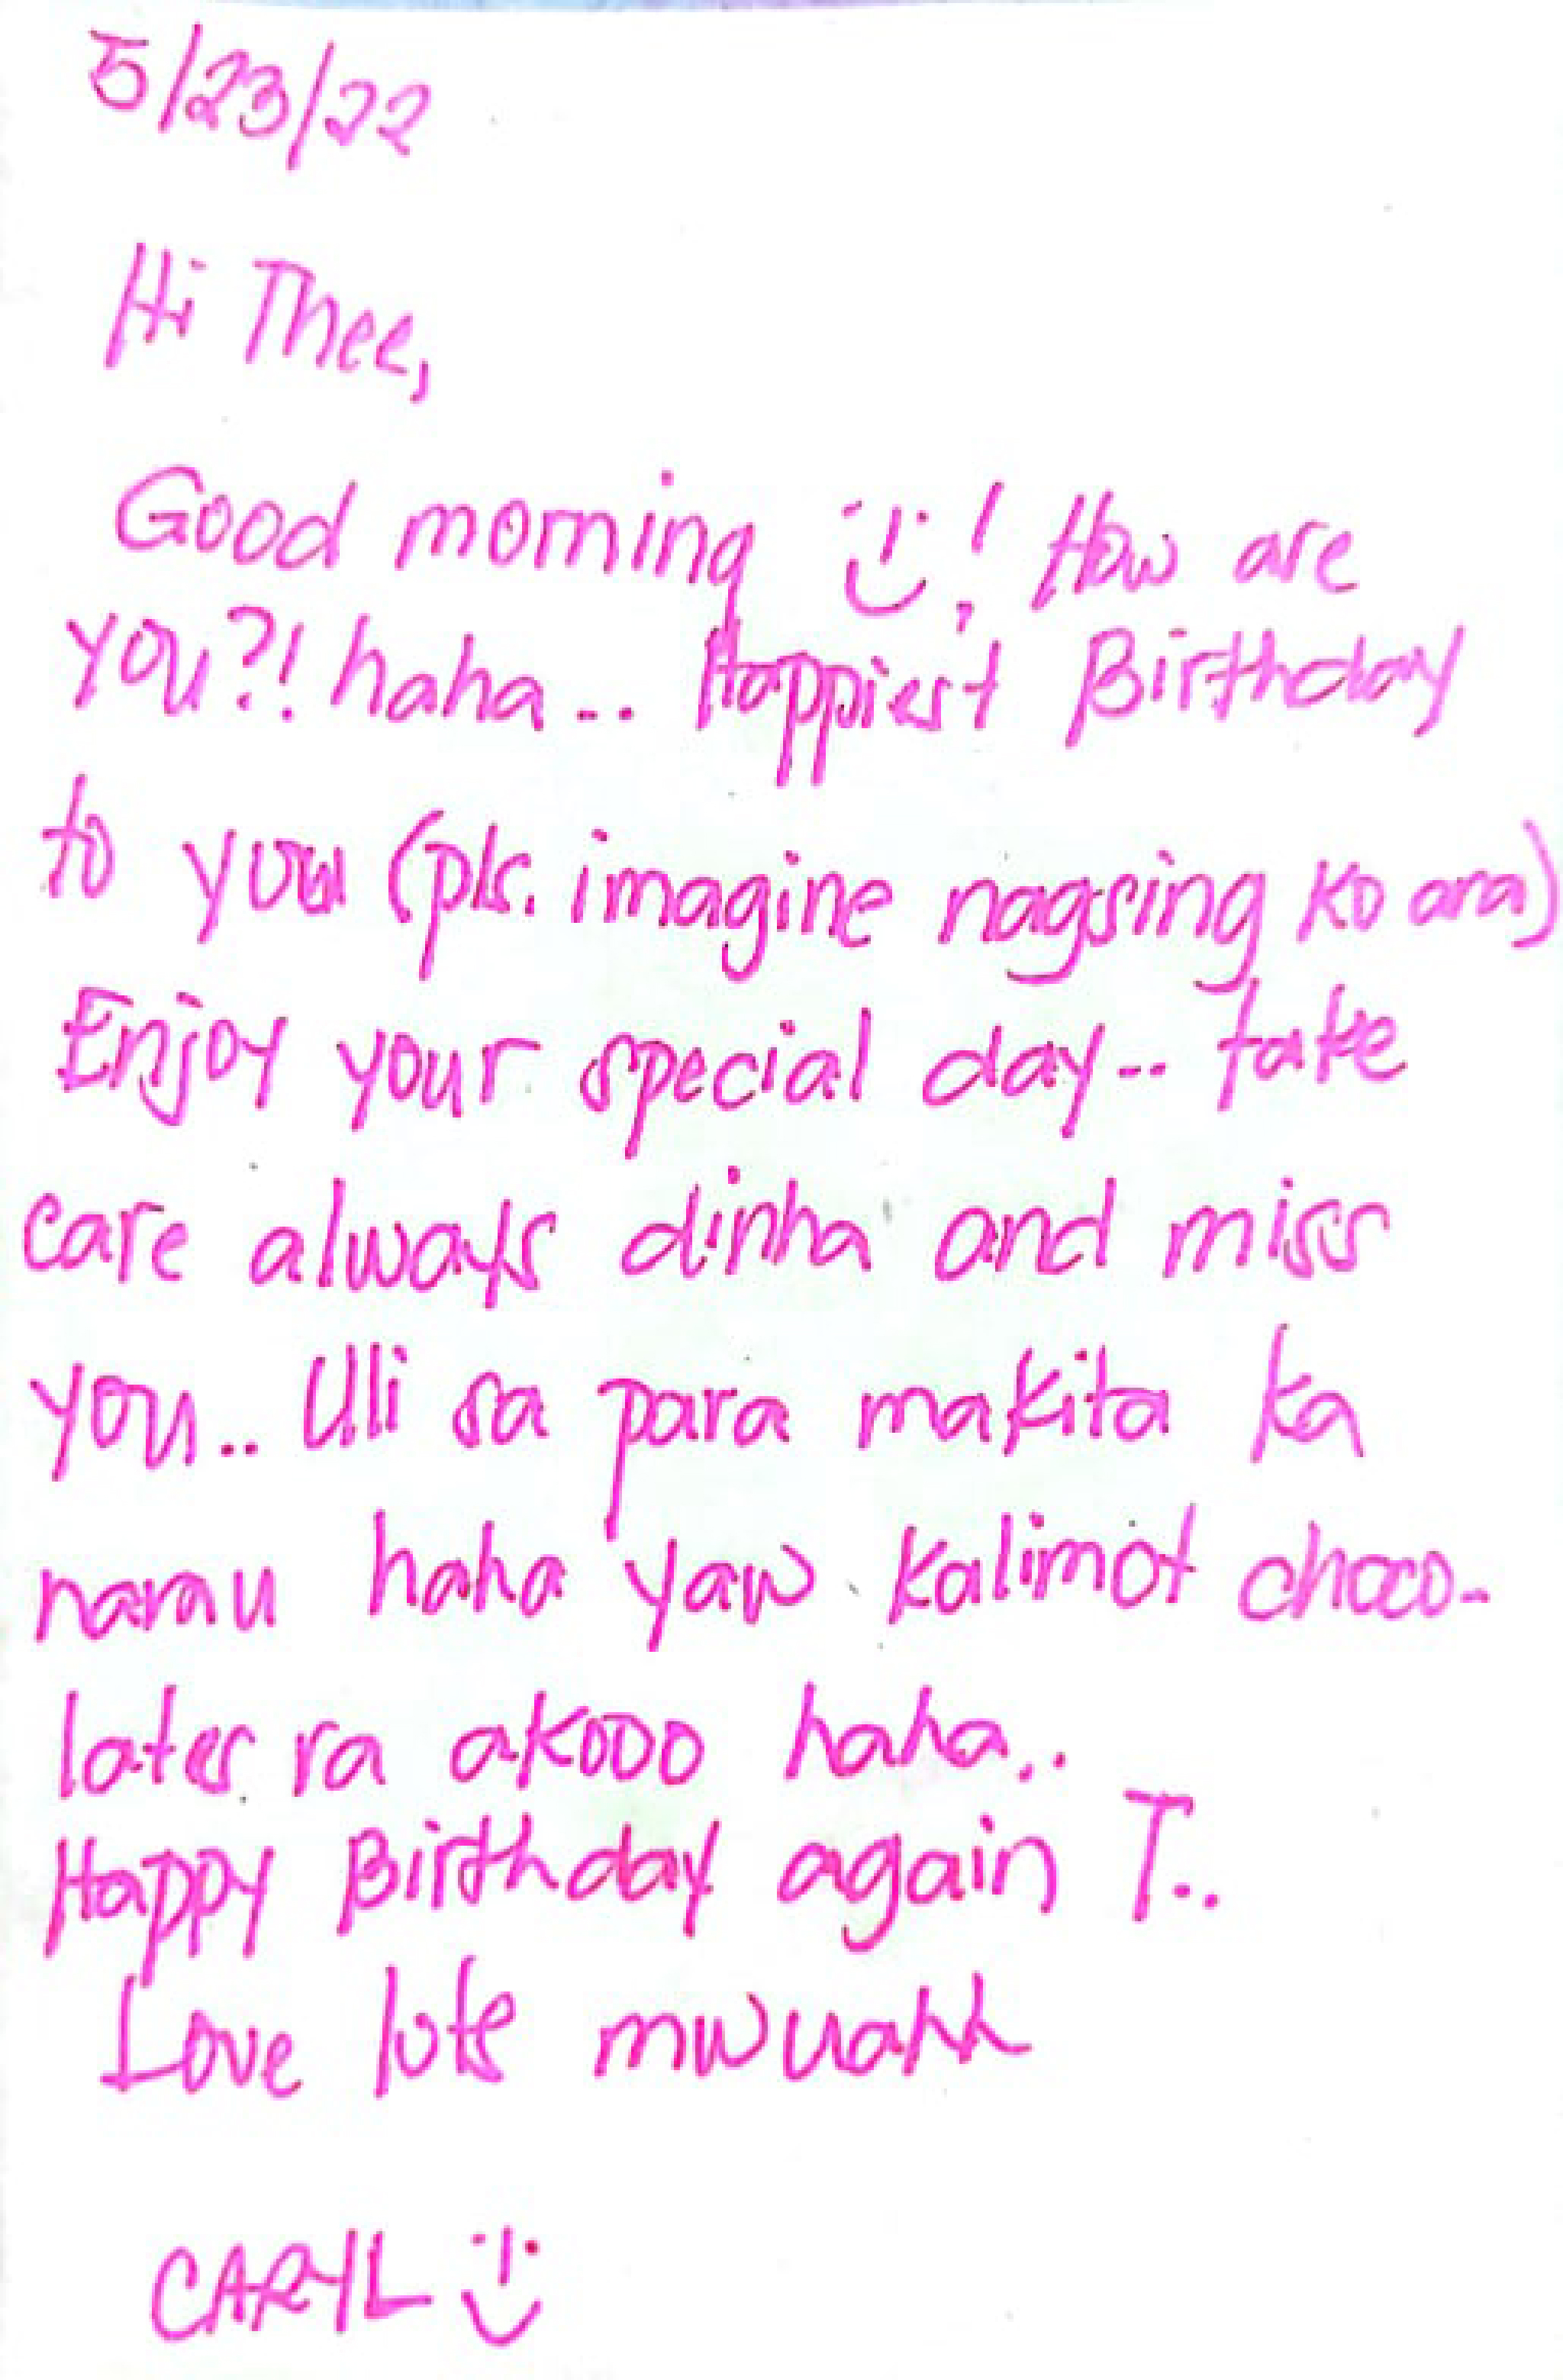 5/23/22
Hi Thee,
Good morning :) ! How are
you?! haha.. Happiest Birthday
to you (pls. imagine nagsing ko ara)
Enjoy your special day.. take
care always dinha and miss
you.. Uli sa para makita ka
namu haha yaw kalimot choco-
lates ra akooo haha..
Happy Birthday again T..
Love lots mwuahh
CARYL :)